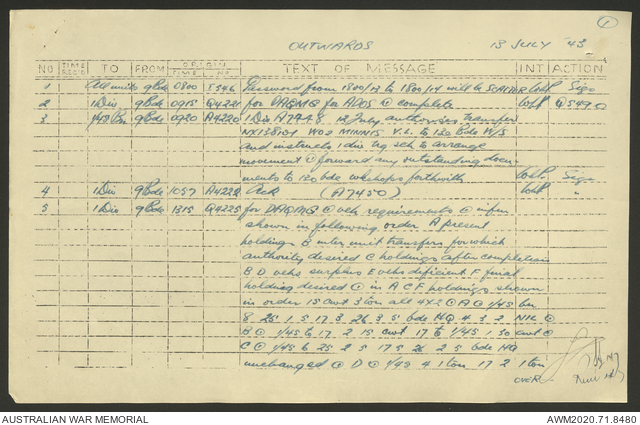 1
OUTWARDS 13 JULY 43
NO TIME REC'D TO FROM ORIGIN TIME No TEXT OF MESSAGE INT ACTION
1 All units 9 Bde 0800 S346 Password from 1800/13 to 1800/14 will be WHP Sigs
2 1 Div 9 Bde 0915 Q4221 for DAQMG for ADOS @ complete WHP Q549.
3 1/45 Bn 9 Bde 0920 A4220 1 Div A7448 12 July authorises transfer
NX138101 WO2 MINNIS V.L. to 120 Bde W/S
and instructs 1 div trg sch to arrange
movement @ forward any outstanding docu-
ments to 120 bde workshops forthwith WHP Sigs
4 1 Div 9 Bde 1057 A4222 Ack (A7450) WHP "
5 1 Div 9 Bde 1315 Q4225 for DAQMG @ vehs requirements @ infm
shown in following order A present
holdings B inter unit transfers for which
authority desired C holdings after completion
B D vehs surplus E vehs deficient F final
holding desired @ in A C F holdings shown
in order 15 cwt 3 ton all 4X2 @ A @ 1/45 bn
8 25 1 5 17 3 26 3 5 bde HQ 4 3 2 NIL @
B @ 1/45 to 17 2 15 cwt 17 to 1/45 1 30 cwt @
C @ 1/45 6 25 2 5 17 5 26 2 5 bde HQ
unchanged @ D @ 1/45 4 1 ton 17 2 1 ton
OVER
AUSTRALIAN WAR MEMORIAL AWM2020.71.8480